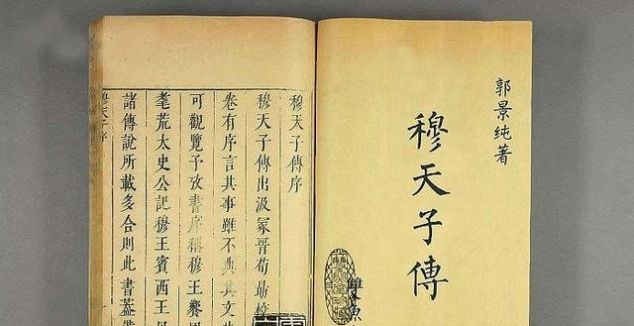 郭景纯著
穆天子傳
穆天子傳序
穆天子傳出汲冢晉荀勗校
卷有序言其事雖不典其文
可觀覽予攷書序稱穆王饗
耄荒太史公記穆王賓西王
諸傳說所載多合則此書蓋
穆天子序